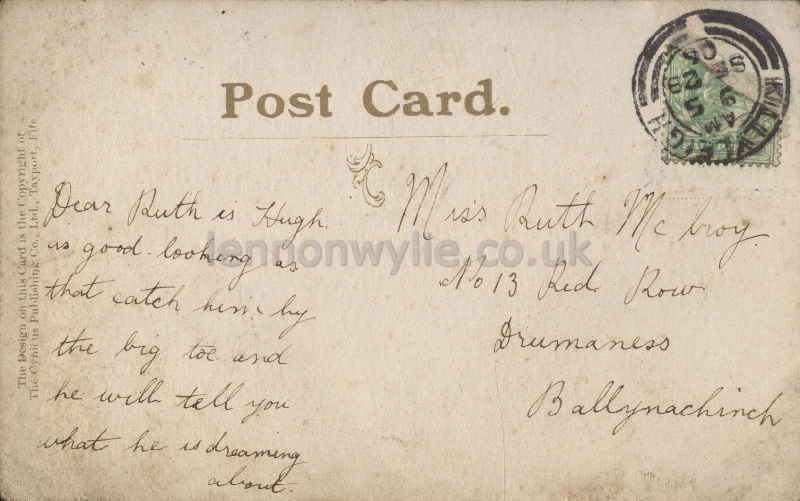 Post Card.
KILLYLEIGH
9 15 AM
SE 28
05
The Design on this Card is the Copyright of
The Cynicus Publishing Co., Ltd., Tayport, Fife
Dear Ruth is Hugh
as good looking as
that catch him by
the big toe and
he will tell you
what he is dreaming
about.
Miss Ruth McIlroy.
No 13 Red Row
Drumaness
Ballynachinch
lennonwylie.co.uk